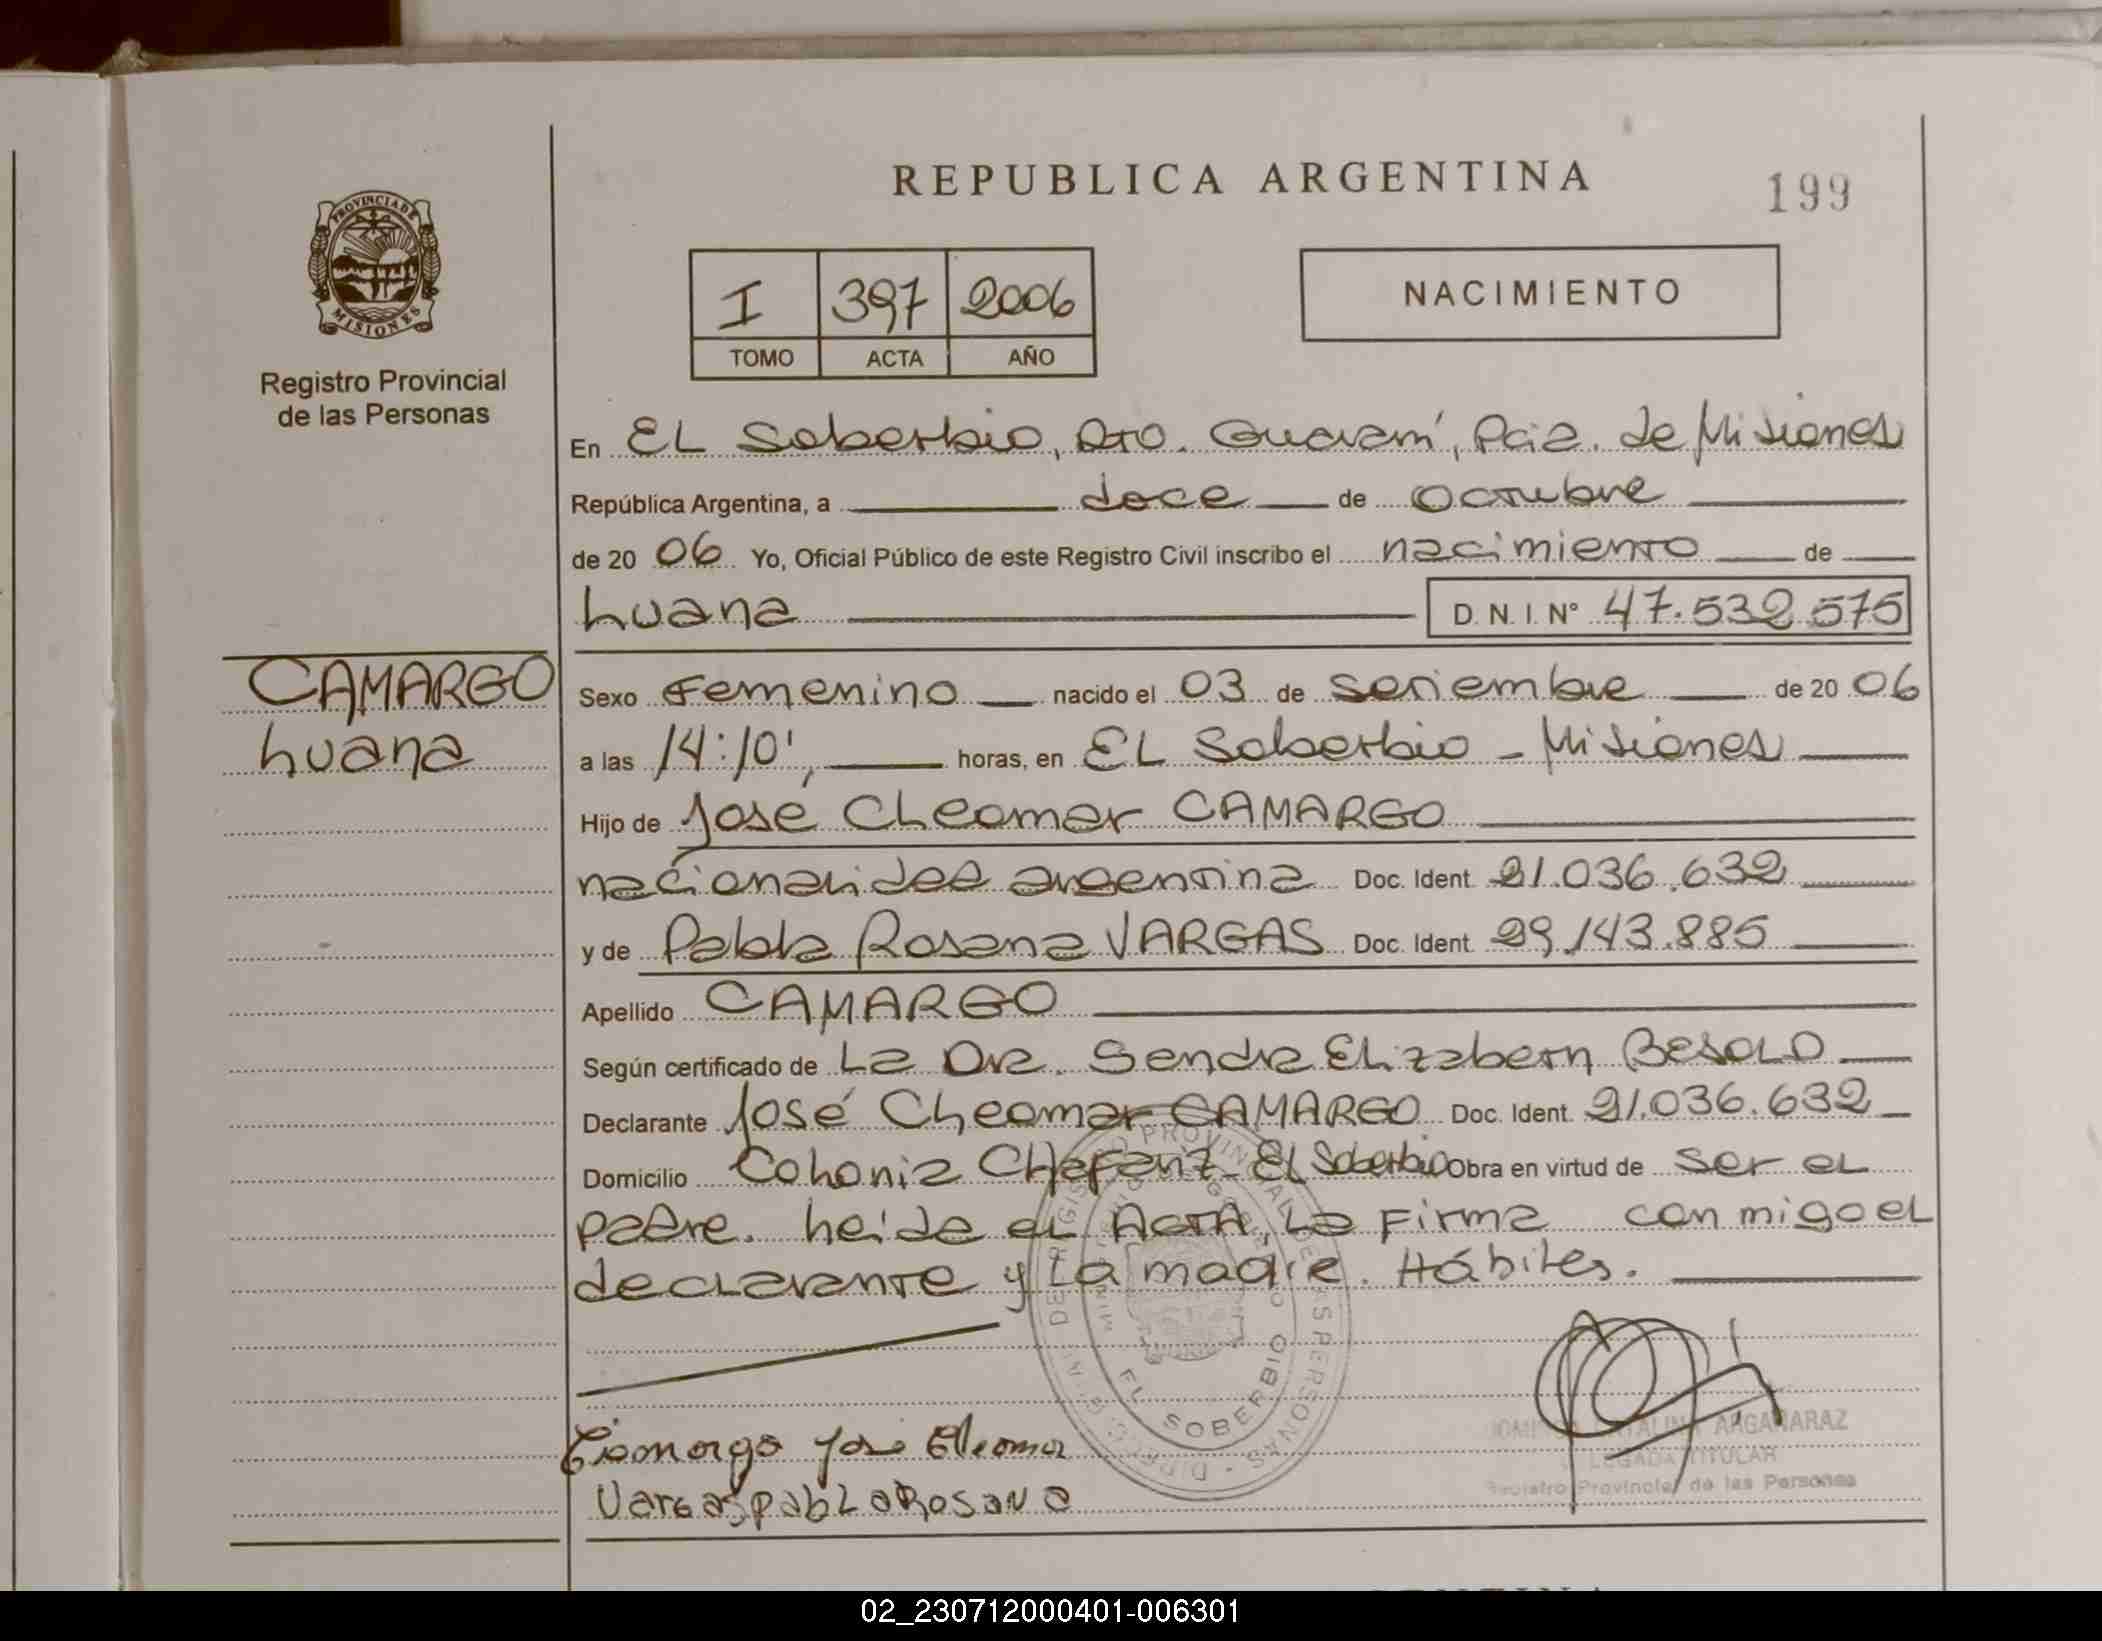 REPUBLICA ARGENTINA
199
PROVINCIA DE
MISIONES
Registro Provincial
de las Personas
I 397 2006
TOMO ACTA AÑO
NACIMIENTO
En EL Soberbio, Dto. Guaraní, Pcia. de Misiones
República Argentina, a doce de Octubre
de 20 06 Yo, Oficial Público de este Registro Civil inscribo el nacimiento de
Luana D. N. I. N° 47.532.575
CAMARGO
Luana
Sexo Femenino nacido el 03 de Setiembre de 20 06
a las 14:10', horas, en EL Soberbio - Misiones
Hijo de José Cleomar CAMARGO
nacionalidad argentina Doc. Ident. 21.036.632
y de Pabla Rosana VARGAS Doc. Ident. 29.143.885
Apellido CAMARGO
Según certificado de La Dra. Sandra Elizabeth BESOLD
Declarante José Cleomar CAMARGO Doc. Ident. 21.036.632
Domicilio Colonia Chafariz - El Soberbio Obra en virtud de Ser el
padre. Leída el ACTA, La Firma conmigo el
declarante y La madre. Hábiles.
EL SOBERBIO
Camargo José Cleomar
Vargas pabLa Rosana
CATALINA ARGAÑARAZ
DELEGADA TITULAR
Registro Provincial de las Personas
02_230712000401-006301